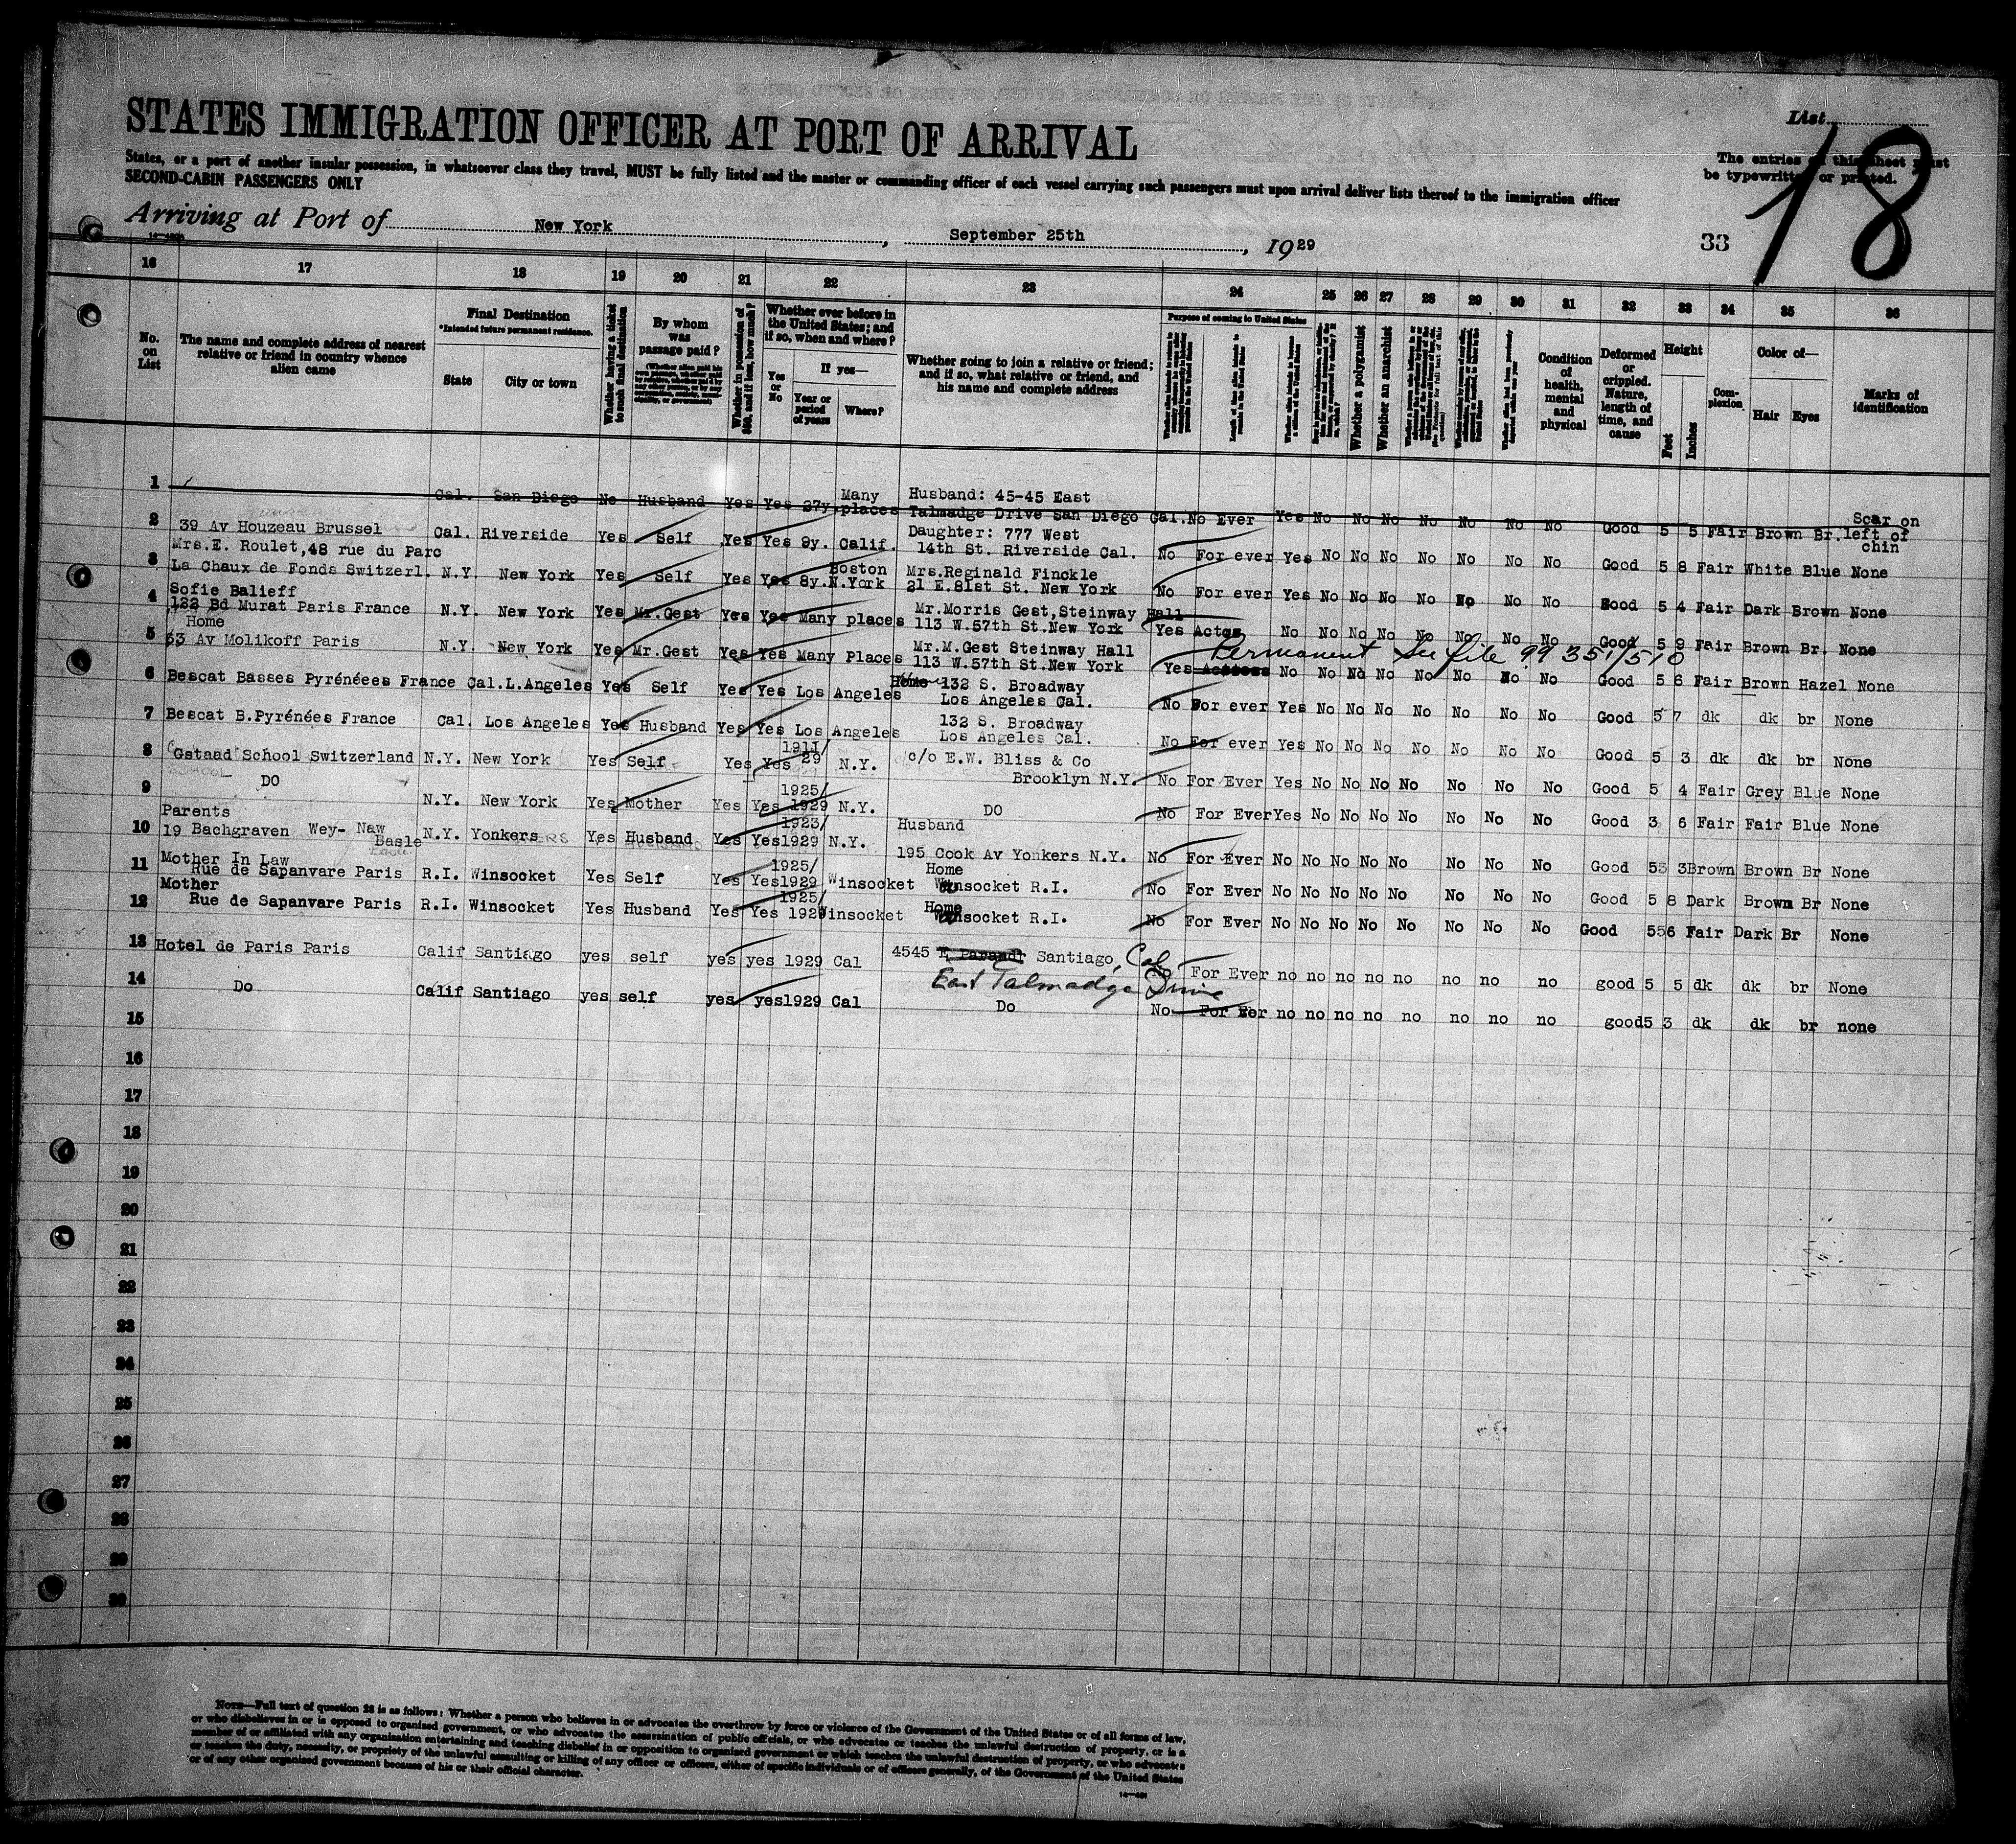 STATES IMMIGRATION OFFICER AT PORT OF ARRIVAL
List
18
States, or a port of another insular possession, in whatsoever class they travel, MUST be fully listed and the master or commanding officer of each vessel carrying such passengers must upon arrival deliver lists thereof to the immigration officer
The entries on this sheet must
be typewritten or printed.
SECOND-CABIN PASSENGERS ONLY
Arriving at Port of New York, September 25th, 1929
33
16 17 18 19 20 21 22 23 24 25 26 27 28 29 30 31 32 33 34 35 36
No. on List
The name and complete address of nearest relative or friend in country whence alien came
Final Destination
*Intended future permanent residence.
State
City or town
Whether having a ticket to such final destination
By whom was passage paid?
Whether ever before in the United States; and if so, when and where?
Yes or No
If yes—
Year or period of years
Where?
Whether going to join a relative or friend; and if so, what relative or friend, and his name and complete address
Purpose of coming to United States
Whether a polygamist
Whether an anarchist
Condition of health, mental and physical
Deformed or crippled. Nature, length of time, and cause
Height
Feet
Inches
Complexion
Color of—
Hair
Eyes
Marks of identification
1 Cal. San Diego No Husband Yes Yes 27y. Many places Husband: 45-45 East Talmadge Drive San Diego Cal. No Ever Yes No No No No No No No Good 5 5 Fair Brown Br. Scar on left of chin
2 39 Av Houzeau Brussel Cal. Riverside Yes Self Yes Yes 9y. Calif. Daughter: 777 West 14th St. Riverside Cal. No For ever Yes No No No No No No No Good 5 8 Fair White Blue None
3 Mrs.E. Roulet,48 rue du Parc La Chaux de Fonds Switzerl. N.Y. New York Yes Self Yes Yes 8y. Boston N.York Mrs.Reginald Finckle 21 E.81st St. New York No For ever Yes No No No No No No No Good 5 4 Fair Dark Brown None
4 Sofie Balieff 122 Bd Murat Paris France N.Y. New York Yes Mr.Gest Yes Yes Many places Mr.Morris Gest,Steinway Hall 113 W.57th St.New York Yes Actor No No No No No No No No Good 5 9 Fair Brown Br. None
Permanent See file 99351/510
5 Home 63 Av Molikoff Paris N.Y. New York Yes Mr.Gest Yes Yes Many Places Mr.M.Gest Steinway Hall 113 W.57th St.New York Yes Actress No No No No No No No No Good 5 6 Fair Brown Hazel None
6 Bescat Basses Pyrénées France Cal.L.Angeles Yes Self Yes Yes Los Angeles Home 132 S. Broadway Los Angeles Cal. No For ever Yes No No No No No No No Good 5 7 dk dk br None
7 Bescat B.Pyrénées France Cal. Los Angeles Yes Husband Yes Yes Los Angeles 132 S. Broadway Los Angeles Cal. No For ever Yes No No No No No No No Good 5 3 dk dk br None
8 Gstaad School Switzerland N.Y. New York Yes Self Yes Yes 1911/29 N.Y. c/o E.W. Bliss & Co Brooklyn N.Y. No For Ever Yes No No No No No No No Good 5 4 Fair Grey Blue None
9 DO N.Y. New York Yes Mother Yes Yes 1925/1929 N.Y. DO No For Ever Yes No No No No No No No Good 3 6 Fair Fair Blue None
10 Parents 19 Bachgraven Wey- Naw Basle N.Y. Yonkers Yes Husband Yes Yes 1923/1929 N.Y. Husband 195 Cook Av Yonkers N.Y. No For Ever No No No No No No No No Good 5 3 Brown Brown Br None
11 Mother In Law Rue de Sapanvare Paris R.I. Winsocket Yes Self Yes Yes 1925/1929 Winsocket Home Winsocket R.I. No For Ever No No No No No No No No Good 5 8 Dark Brown Br None
12 Mother Rue de Sapanvare Paris R.I. Winsocket Yes Husband Yes Yes 1925/1929 Winsocket Home Winsocket R.I. No For Ever No No No No No No No No Good 5 6 Fair Dark Br None
13 Hotel de Paris Paris Calif Santiago yes self yes yes 1929 Cal 4545 E Santiago, Cal East Talmadge Drive No For Ever no no no no no no no no good 5 5 dk dk br None
14 Do Calif Santiago yes self yes yes1929 Cal Do No For Ever no no no no no no no no good 5 3 dk dk br none
15
16
17
18
19
20
21
22
23
24
25
26
27
28
29
30
NOTE—Full text of question 28 is as follows: Whether a person who believes in or advocates the overthrow by force or violence of the Government of the United States or of all forms of law,
or who disbelieves in or is opposed to organized government, or who advocates the assassination of public officials, or who advocates or teaches the unlawful destruction of property, or is a
member of or affiliated with any organization entertaining and teaching disbelief in or opposition to organized government or which teaches the unlawful destruction of property, or who advocates
or teaches the duty, necessity, or propriety of the unlawful assaulting or killing of any officer or officers, either of specific individuals or of officers generally, of the Government of the United States
or of any other organized government because of his or their official character.